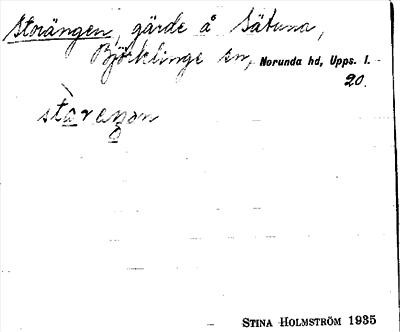 Storängen, gärde å Sätuna,
Björklinge sn, Norunda hd, Upps. l.
20.
stàrenan
STINA HOLMSTRÖM 1935